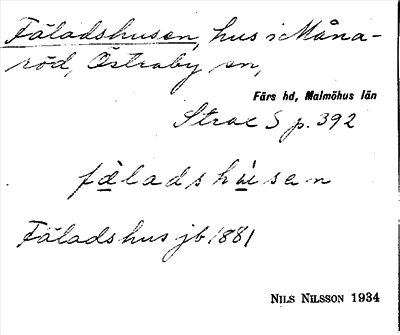 Fäladshusen, hus i Måna-
röd, Östraby sn,
Färs hd, Malmöhus län
Strax S p. 392
fäladshùsen
Fäladshus jb 1881
NILS NILSSON 1934